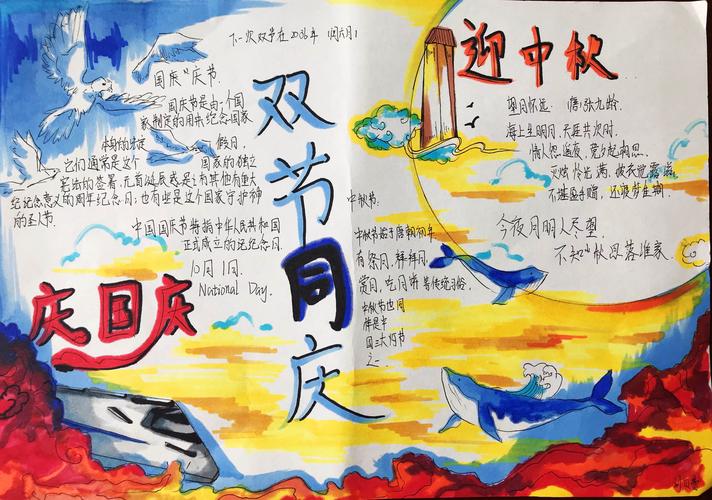 下一次双节在2036年
双节同庆
国庆"庆节
国庆节是由一个国
家制定的用来纪念国家
本身的法定
假日.
它们通常是这个
国家的独立
宪法的签署.元首诞辰或是有其他有重大
纪念意义的周年纪念日,也有些是这个国家守护神
的圣人节.
中国国庆节特指中华人民共和国
正式成立的纪念日
10月1日.
National Day.
庆国庆
迎中秋
望月怀远 唐:张九龄.
海上生明月,天涯共次时.
情人怨遥夜,竟夕起相思.
灭烛怜光满,披衣觉露滋
不堪盈手赠,还寝梦佳期.
今夜月明人尽望
不知秋思落谁家.
中秋节:
中秋节始于唐朝初年
有祭月,拜月.
赏月,吃月饼等传统习俗.
中秋节也同
样是中
国三大灯节
之一